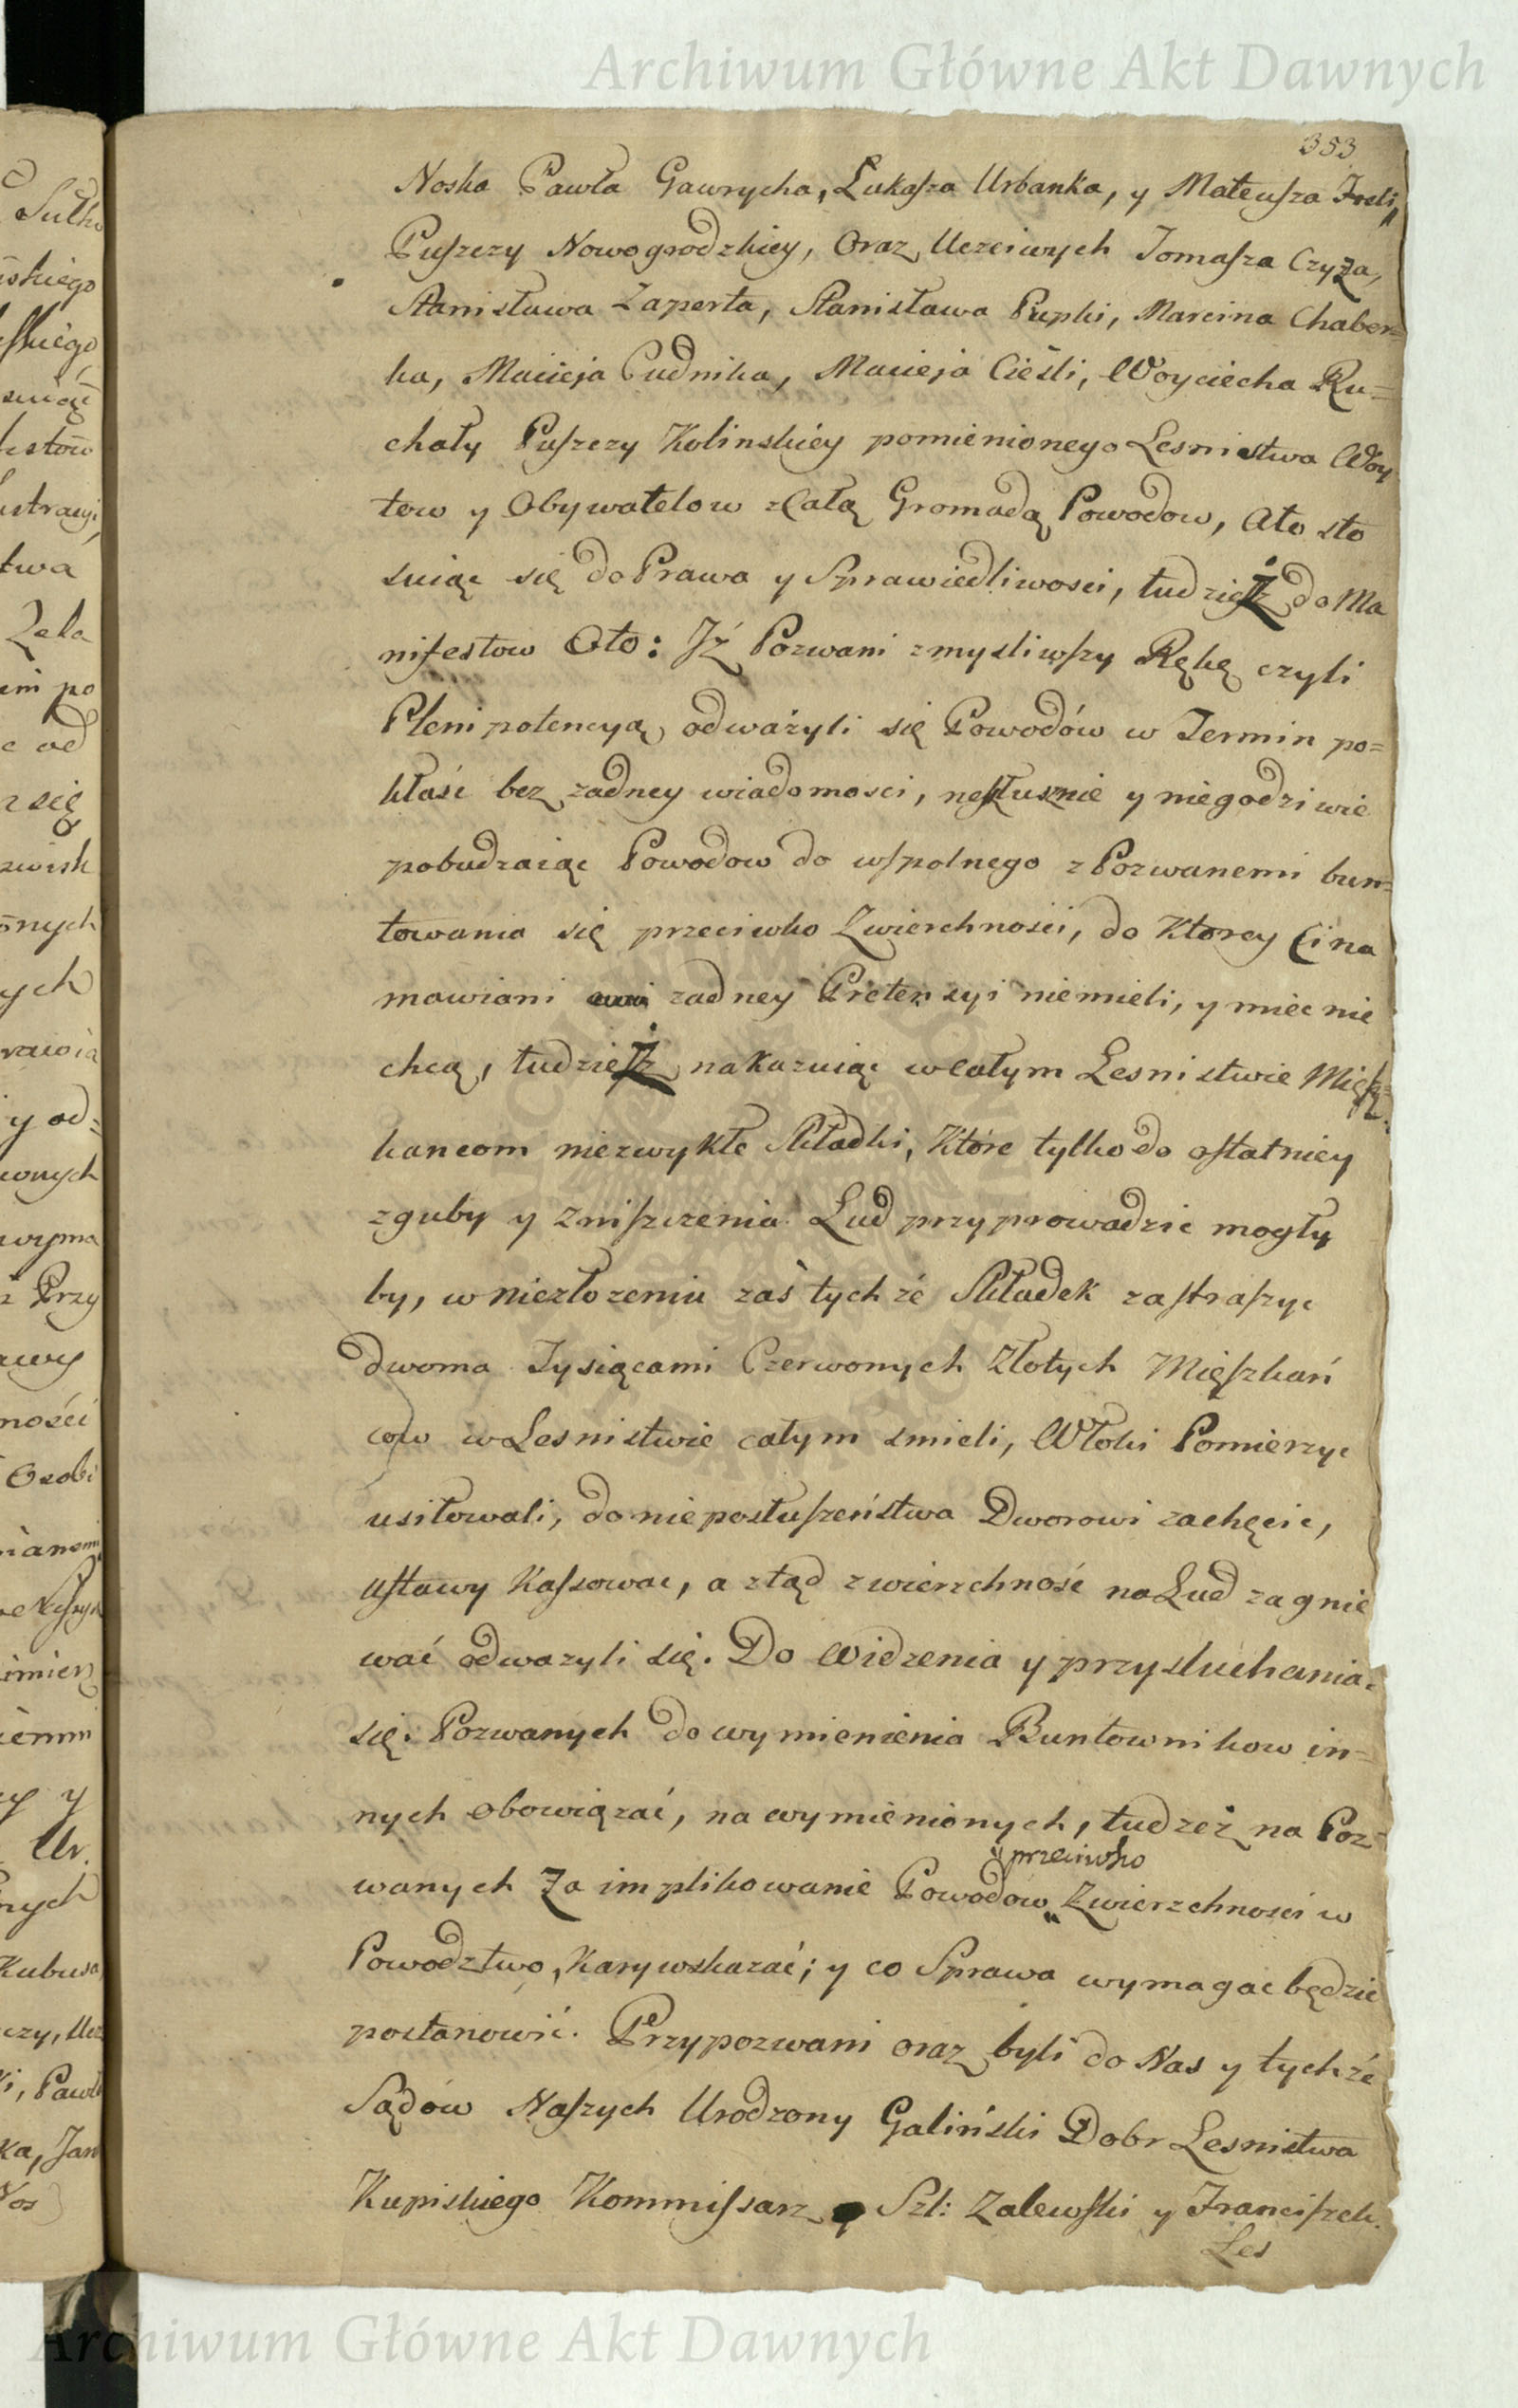 Archiwum Główne Akt Dawnych
353
Noska Pawła Gawrycha, Łukasza Urbanka, y Mateusza
Puszczy Nowogrodzkiey, Oraz Uczciwych Tomasza Czyża,
Stanisława Zaperta, Stanisława Pupki, Marcina Chaber=
ka, Macieja Pudnika, Macieja Cieśli, Woyciecha Ru=
chały Puszczy Kolinskiey pomienionego Lesnistwa Woy
tow y Obywatelow z Całą Gromadą Powodow, Ato sto
suiąc się do Prawa y Sprawiedliwosci, tudzież do Ma
nifestow Oto: Jż Pozwani zmysliwszy Rękę czyli
Plenipotencyą, odważyli się Powodów w Termin po=
kłaść bez zadney wiadomosci, niesłusznie y niegodziwie
pobudzaiąc Powodow do wspolnego z Pozwanemi bun=
towania się przeciwko Zwierchności, do Ktorey Ci na
mawiani zadney Pretensyi niemieli, y miec nie
chcą, tudzież nakazuiąc w całym Lesnistwie Miesz=
kancom niezwykłe Składki, Które tylko do ostatniey
zguby y Zniszczenia Lud przyprowadzic mogły
by, w niezłozeniu zaś tychże Składek zastraszyc
dwoma Tysiącami Czerwonych Złotych Mięszkań
cow w Lesnistwie całym smieli, Włoki Pomierzyc
usiłowali, do nieposłuszeństwa Dworowi zachęcic,
Ustawy Kassowac, a ztąd zwierzchność na Lud zagnie
wać odwazyli się. Do Widzenia y przysłuchania
się. Pozwanych do wymienienia Buntownikow in=
nych obowiązać, na wymienionych, tudzeż na Poz=
przeciwko
wanych Za implikowanie Powodow Zwierzchnosci w
Powodztwo, Kary wskazać; y co Sprawa wymagac będzie
postanowić. Przypozwani oraz byli do Nas y tychże
Sądów Naszych Urodzony Galiński Dobr Lesnistwa
Kupiskiego Kommissarz y Szl: Zalewski y Franciszek
Les
Archiwum Główne Akt Dawnych